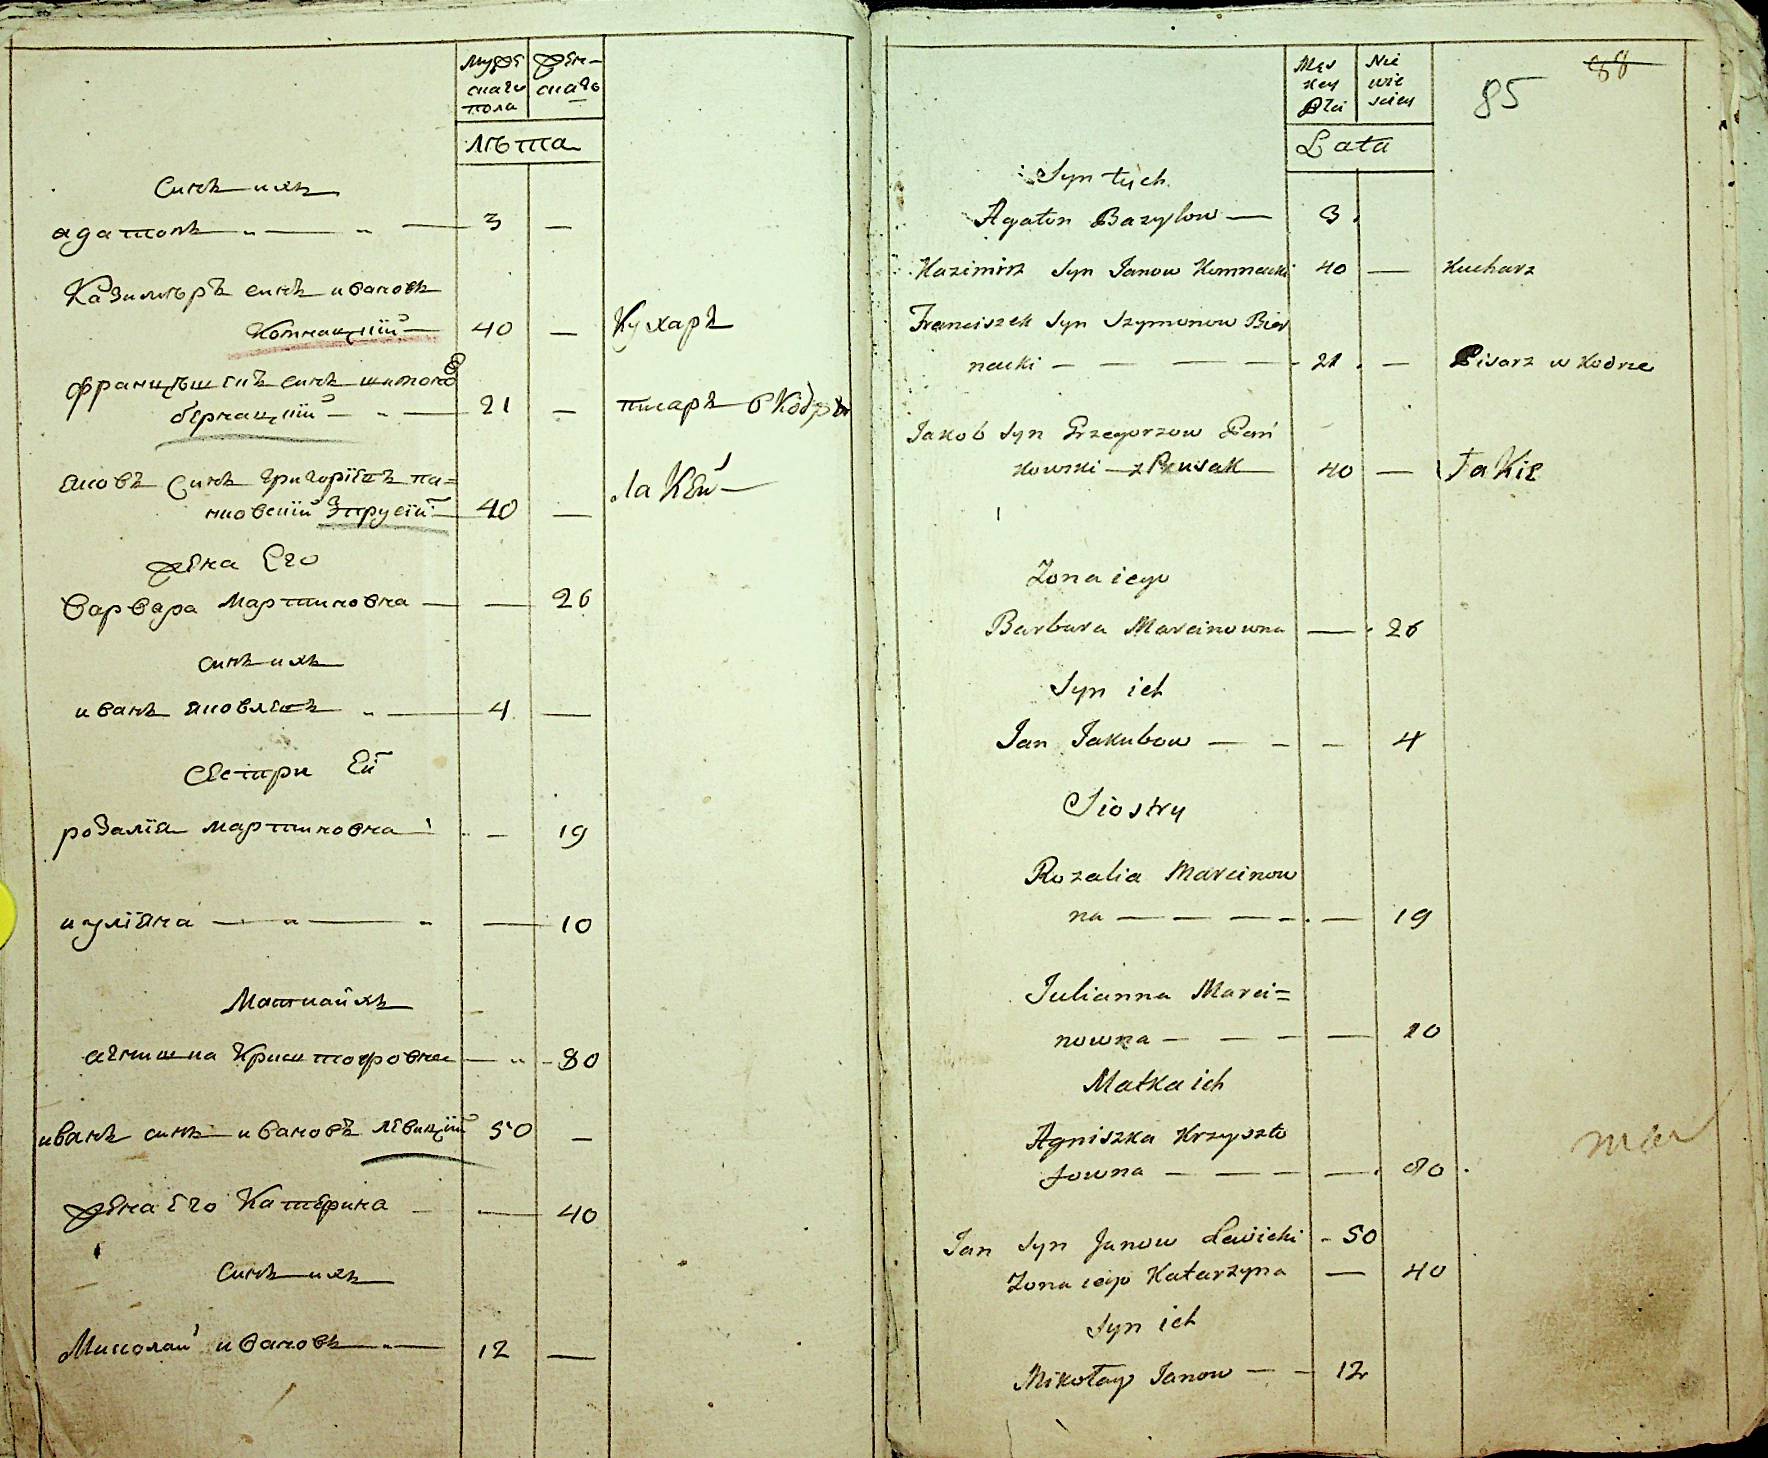 Мужескаго пола
Женскаго
Лѣта
Синъ ихъ
агатонъ 3 —
Казимѣръ синъ ивановъ
Комнацкїй 40 — Кухаръ
францѣшекъ синъ шимоновъ
бернацкїй 21 — писаръ в Кодрѣ
яковъ Синъ григорїевъ па=
нковскїй Зпрусїй 40 — ЛаКей
жена Его
варвара Мартиновна — 26
синъ ихъ
иванъ яковлевъ 4 —
Сестри Ей
розалїя мартиновна — 19
иулїяна — 10
Маткаихъ
агнишка Криштофровна — 80
иванъ синъ ивановъ левицкїй 50 —
жена Его Катерина — 40
Синъ ихъ
Миколай ивановъ 12 —
Męskey Płci
Niewiesciey
85
88
Lata
Syn tych
Agaton Bazylow — 3
Kazimirz Syn Janow Komnacki 40 — Kucharz
Franciszek Syn Szymonow Bier
nacki — — — — 21 — Pisarz w Kodrze
Jakob Syn Grzegorzow Pań
kowski — z Prusak 40 — Takie
Zona iego
Barbara Marcinowna — 26
Syn ich
Jan Jakubow — — — 4
Siostry
Rozalia Marcinow
na — — — — — 19
Julianna Marci=
nowna — — — — 10
Matka ich
Agniszka Krzyszto
fowna — — — — 80
Jan Syn Janow Lewicki - 50
Zona iego Katarzyna — 40
Syn ich
Mikołay Janow — - 12